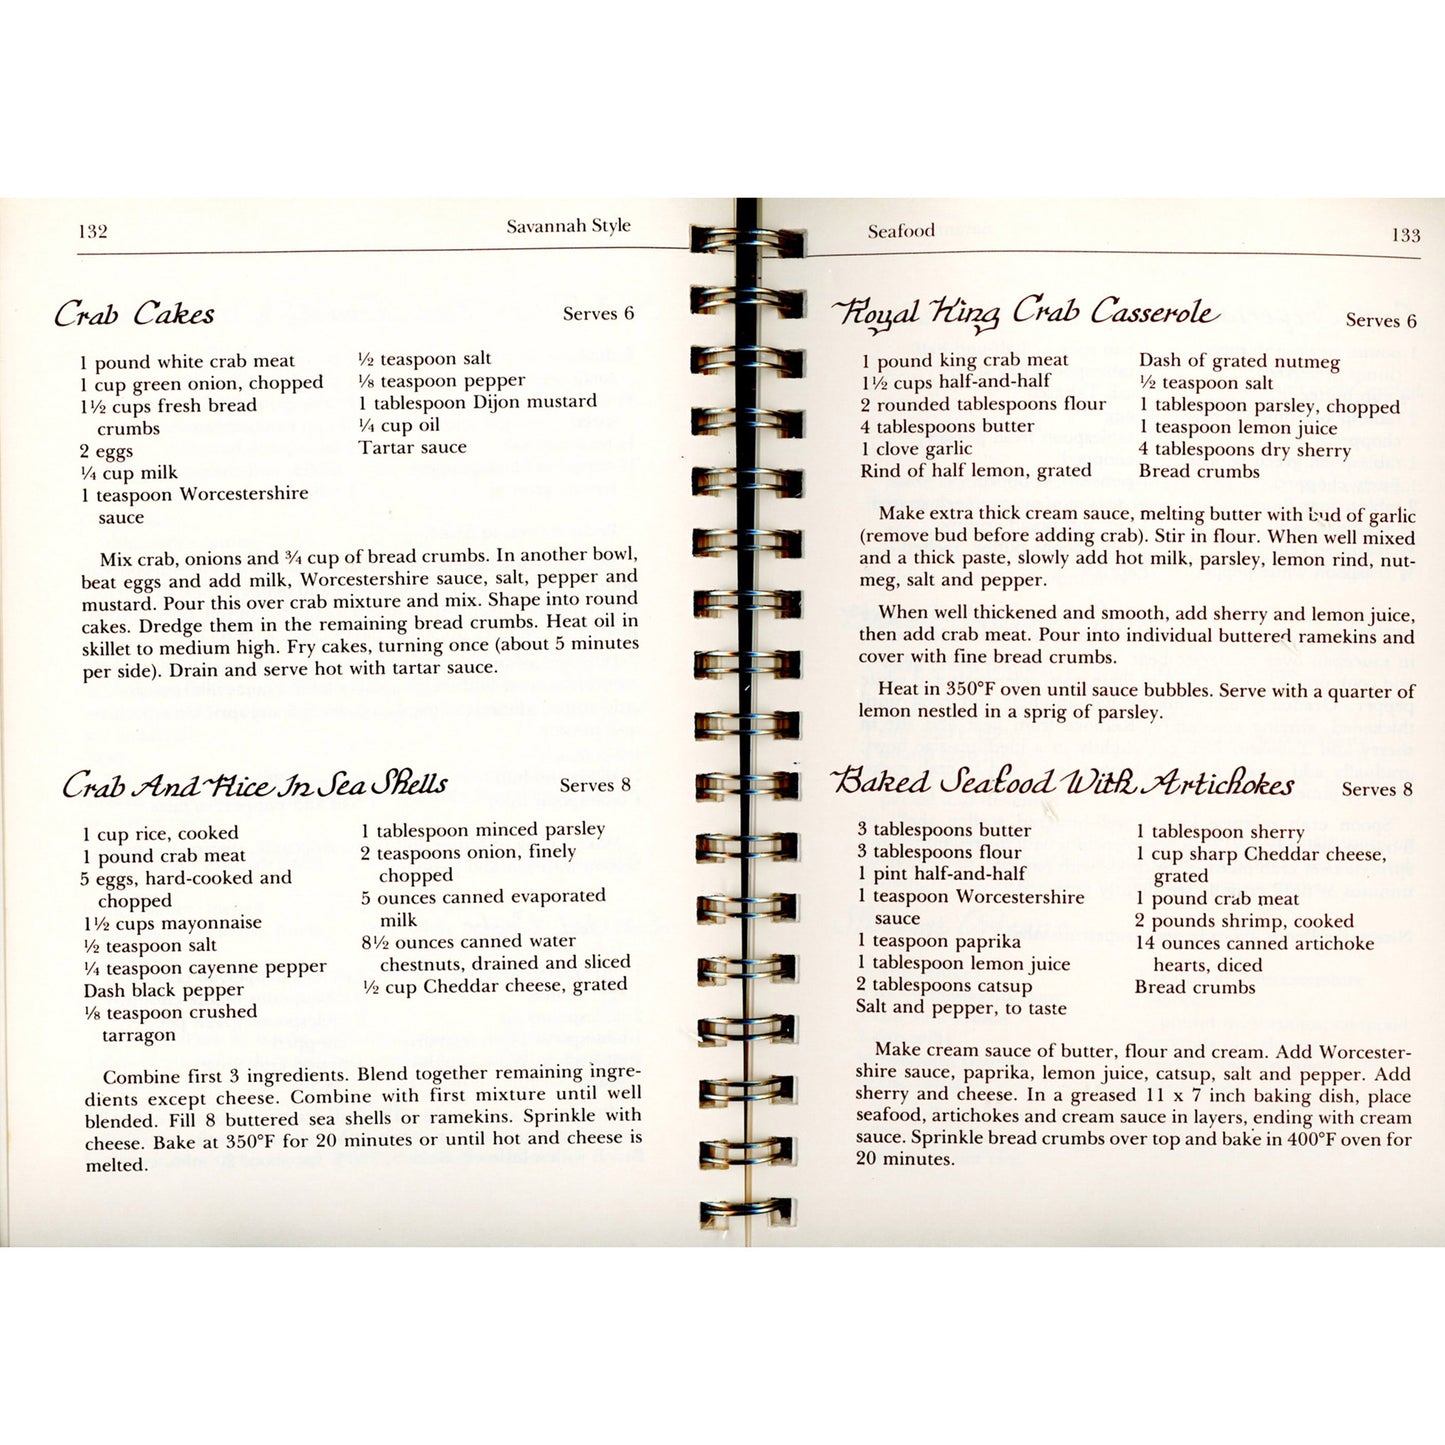 132
Savannah Style
Crab Cakes
Serves 6
1 pound white crab meat
1 cup green onion, chopped
1½ cups fresh bread
crumbs
2 eggs
¼ cup milk
1 teaspoon Worcestershire
sauce
½ teaspoon salt
⅛ teaspoon pepper
1 tablespoon Dijon mustard
¼ cup oil
Tartar sauce
Mix crab, onions and ¾ cup of bread crumbs. In another bowl,
beat eggs and add milk, Worcestershire sauce, salt, pepper and
mustard. Pour this over crab mixture and mix. Shape into round
cakes. Dredge them in the remaining bread crumbs. Heat oil in
skillet to medium high. Fry cakes, turning once (about 5 minutes
per side). Drain and serve hot with tartar sauce.
Crab And Rice In Sea Shells
Serves 8
1 cup rice, cooked
1 pound crab meat
5 eggs, hard-cooked and
chopped
1½ cups mayonnaise
½ teaspoon salt
¼ teaspoon cayenne pepper
Dash black pepper
⅛ teaspoon crushed
tarragon
1 tablespoon minced parsley
2 teaspoons onion, finely
chopped
5 ounces canned evaporated
milk
8½ ounces canned water
chestnuts, drained and sliced
½ cup Cheddar cheese, grated
Combine first 3 ingredients. Blend together remaining ingre-
dients except cheese. Combine with first mixture until well
blended. Fill 8 buttered sea shells or ramekins. Sprinkle with
cheese. Bake at 350°F for 20 minutes or until hot and cheese is
melted.
Seafood
133
Royal King Crab Casserole
Serves 6
1 pound king crab meat
1½ cups half-and-half
2 rounded tablespoons flour
4 tablespoons butter
1 clove garlic
Rind of half lemon, grated
Dash of grated nutmeg
½ teaspoon salt
1 tablespoon parsley, chopped
1 teaspoon lemon juice
4 tablespoons dry sherry
Bread crumbs
Make extra thick cream sauce, melting butter with bud of garlic
(remove bud before adding crab). Stir in flour. When well mixed
and a thick paste, slowly add hot milk, parsley, lemon rind, nut-
meg, salt and pepper.
When well thickened and smooth, add sherry and lemon juice,
then add crab meat. Pour into individual buttered ramekins and
cover with fine bread crumbs.
Heat in 350°F oven until sauce bubbles. Serve with a quarter of
lemon nestled in a sprig of parsley.
Baked Seafood With Artichokes
Serves 8
3 tablespoons butter
3 tablespoons flour
1 pint half-and-half
1 teaspoon Worcestershire
sauce
1 teaspoon paprika
1 tablespoon lemon juice
2 tablespoons catsup
Salt and pepper, to taste
1 tablespoon sherry
1 cup sharp Cheddar cheese,
grated
1 pound crab meat
2 pounds shrimp, cooked
14 ounces canned artichoke
hearts, diced
Bread crumbs
Make cream sauce of butter, flour and cream. Add Worcester-
shire sauce, paprika, lemon juice, catsup, salt and pepper. Add
sherry and cheese. In a greased 11 x 7 inch baking dish, place
seafood, artichokes and cream sauce in layers, ending with cream
sauce. Sprinkle bread crumbs over top and bake in 400°F oven for
20 minutes.